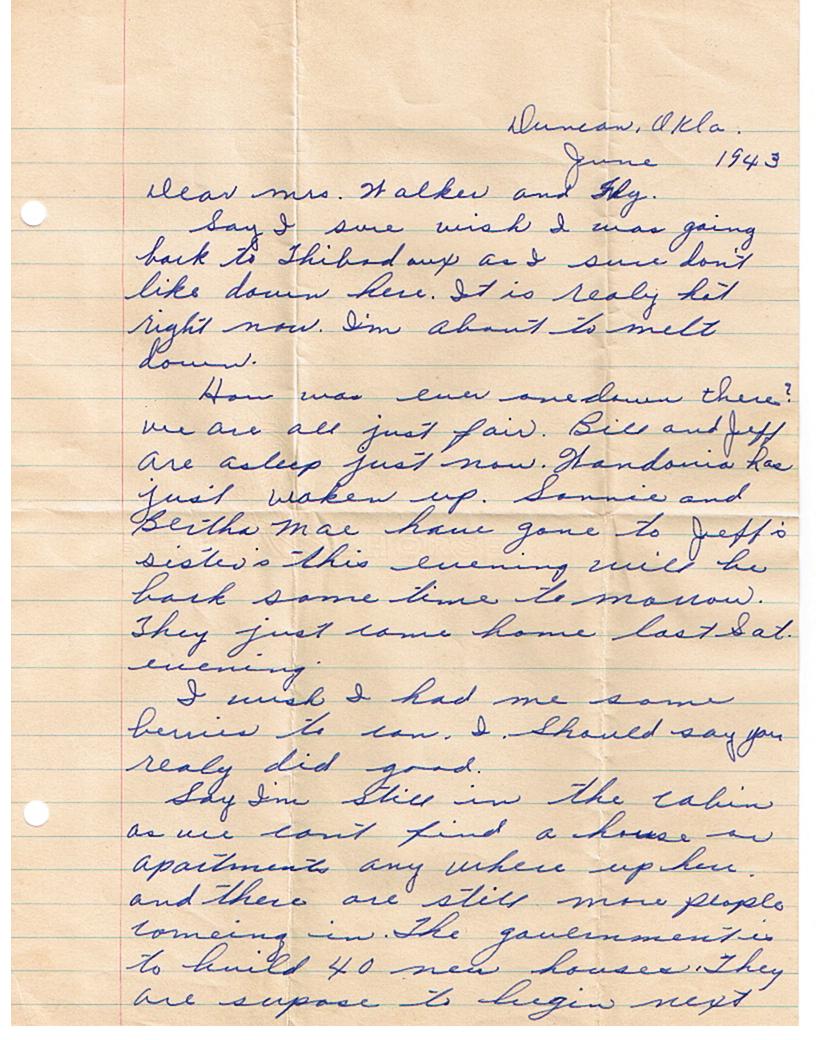 Duncan, Okla.
June 1943
Dear Mrs. Walker and
Say I sure wish I was going
back to Thibodaux as I sure don't
like down here. It is realy hot
right now. I'm about to melt
down.
How was ever onedown there?
we are all just fair. Bill and Jeff
are asleep just now. Wandonia has
just woken up. Sonnie and
Bertha Mae have gone to Jeff's
sister's this evening will be
back some time to morrow.
They just come home last Sat.
evening.
I wish I had me some
berries to can. I should say you
realy did good.
Say I'm still in the cabin
as we can't find a house or
apartments any where up here.
and there are still more people
comeing in. The government is
to build 40 new houses. They
are supose to begin next